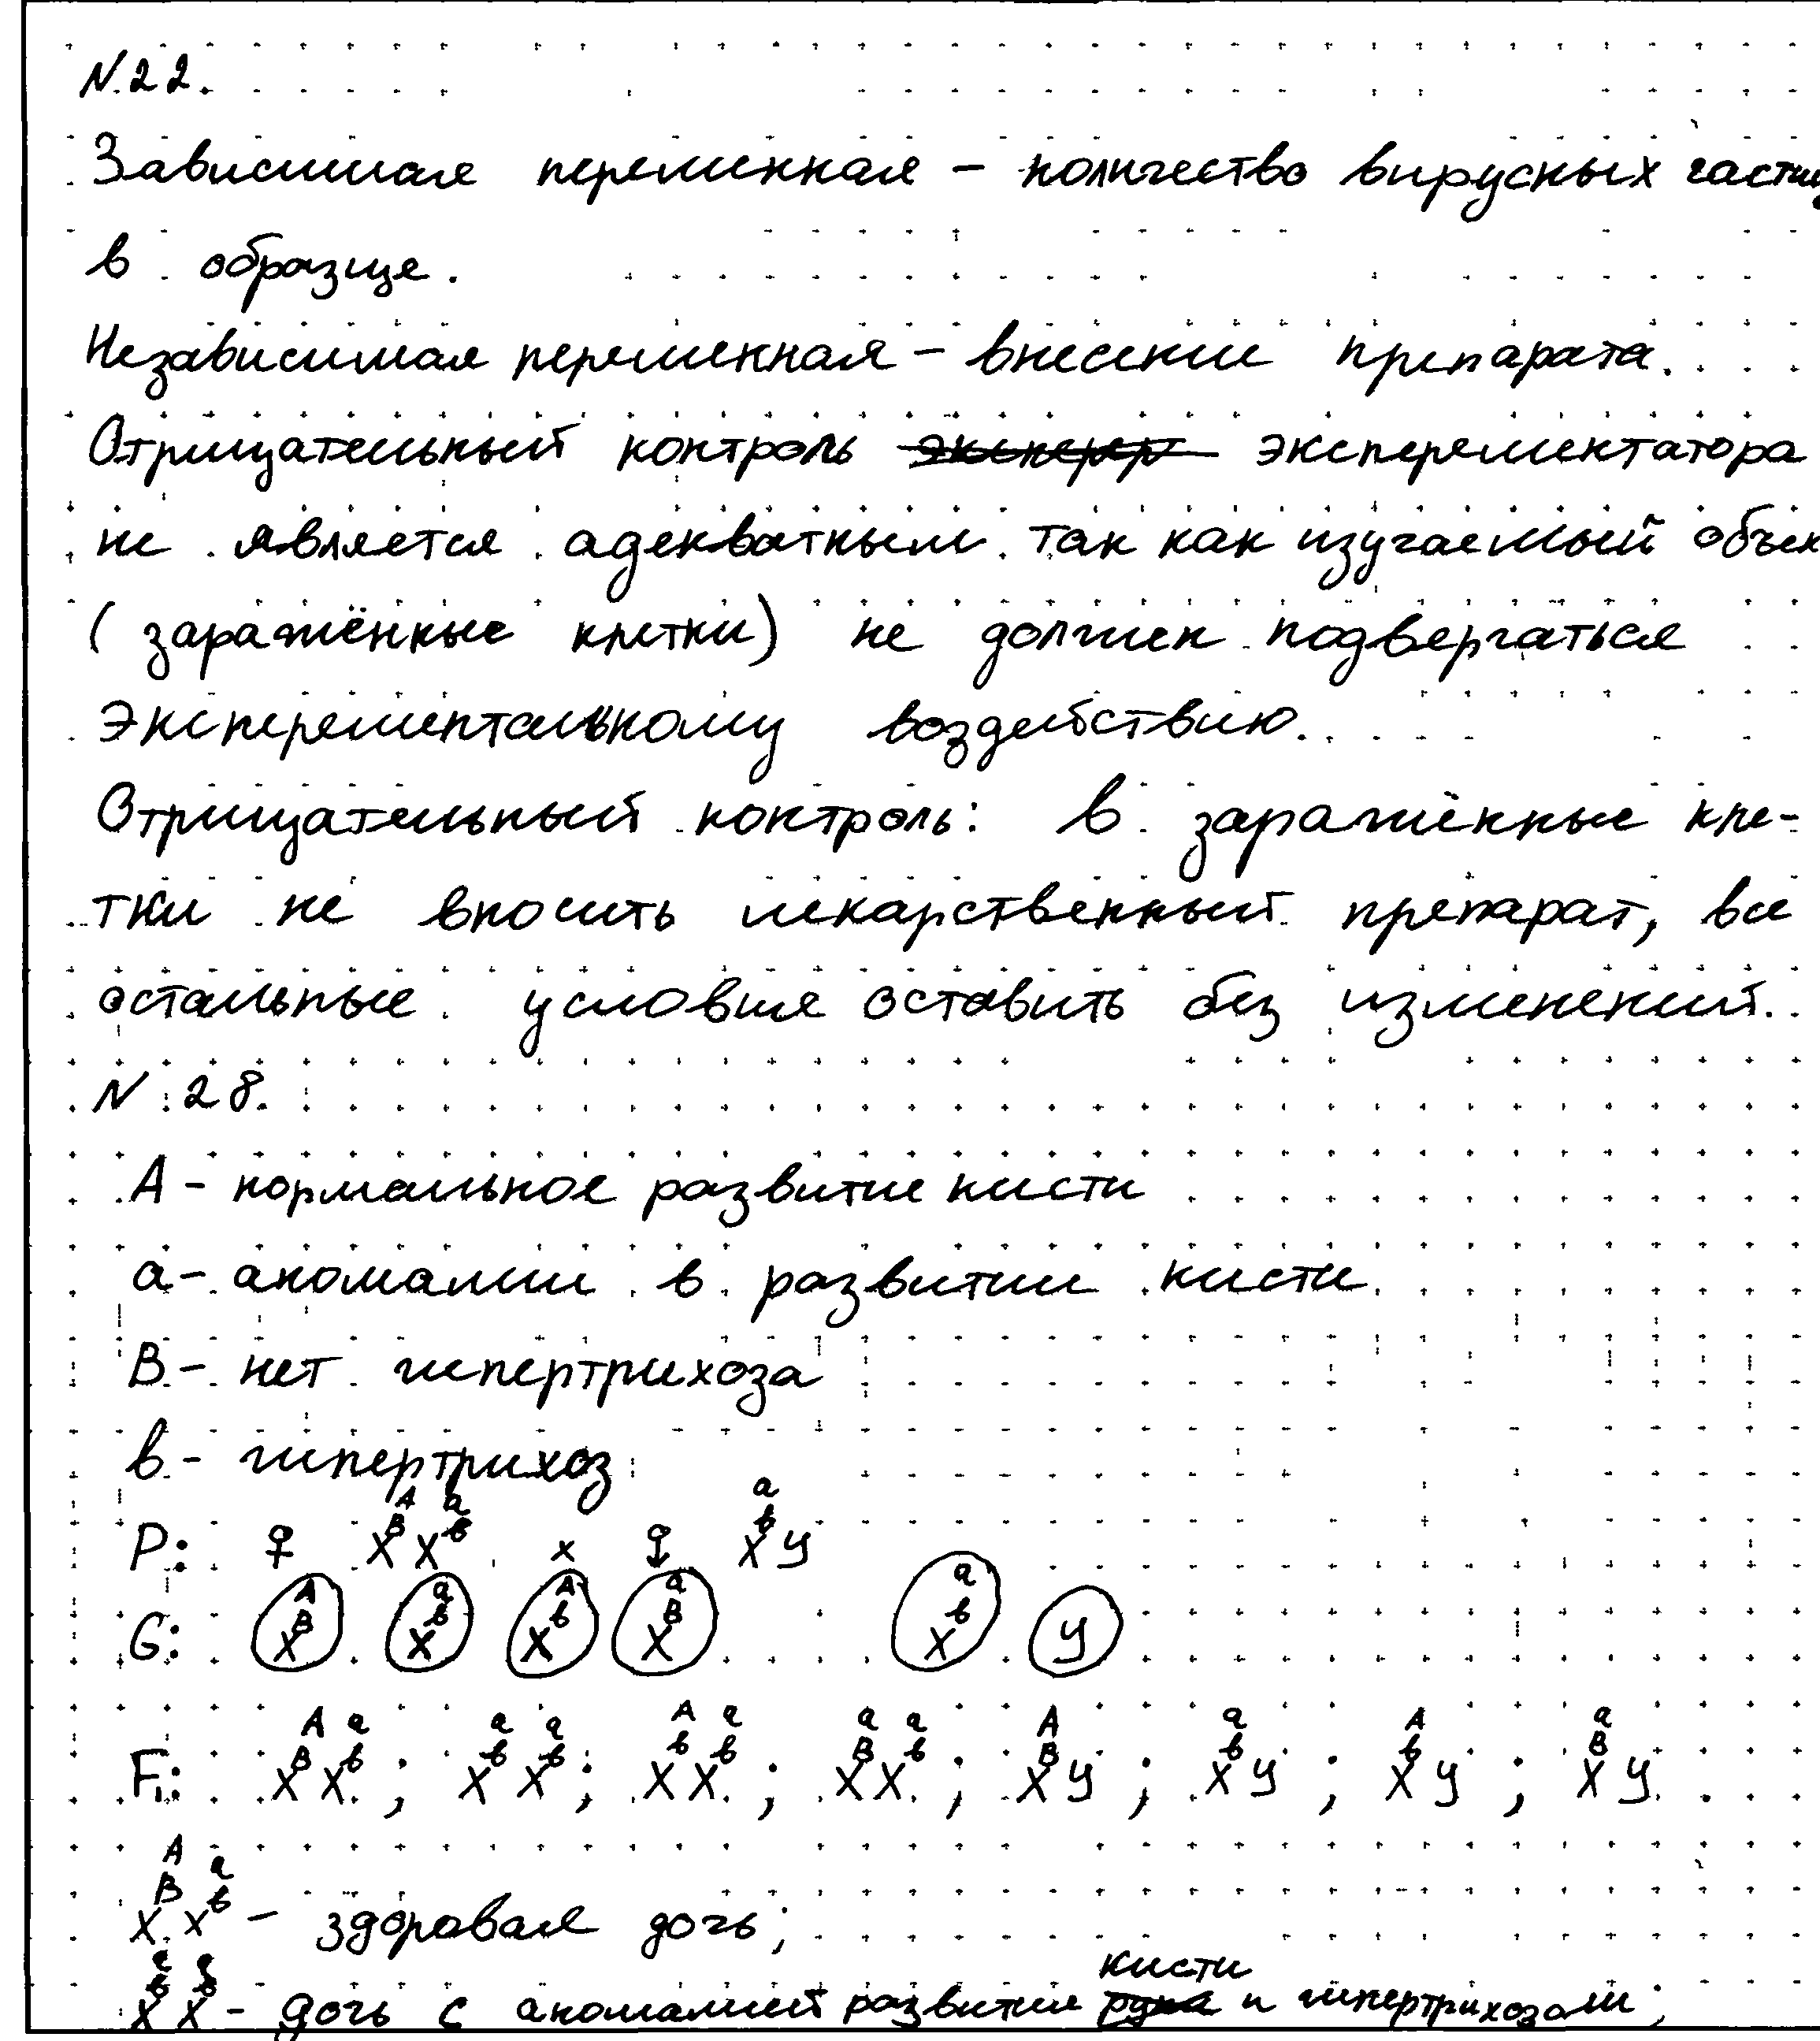 N.22.
Зависимая переменная – количество вирусных частиц
в образце.
Независимая переменная – внесение препарата.
Отрицательный контроль эксперементатора
не является адекватным так как изучаемый объек
(заражённые клетки) не должен подвергаться
эксперементальному воздействию.
Отрицательный контроль: в заражённые кле-
тки не вносить лекарственный препарат, все
остальные условия оставить без изменений.
N 28.
А – нормальное развитие кисти
а – аномалии в развитии кисти
В – нет гипертрихоза
в – гипертрихоз
P: ♀ X^{AB} X^{aв} x ♂ X^{aв} У
G: X^{AB} X^{aв} X^{Aв} X^{aB} X^{aв} У
F₁: X^{AB} X^{aв}; X^{aв} X^{aв}; X^{Aв} X^{aв}; X^{aB} X^{aв}; X^{AB} У; X^{aв} У; X^{Aв} У; X^{aB} У
X^{AB} X^{aв} – здоровая дочь;
X^{aв} X^{aв} – дочь с аномалией развития кисти и гипертрихозом;